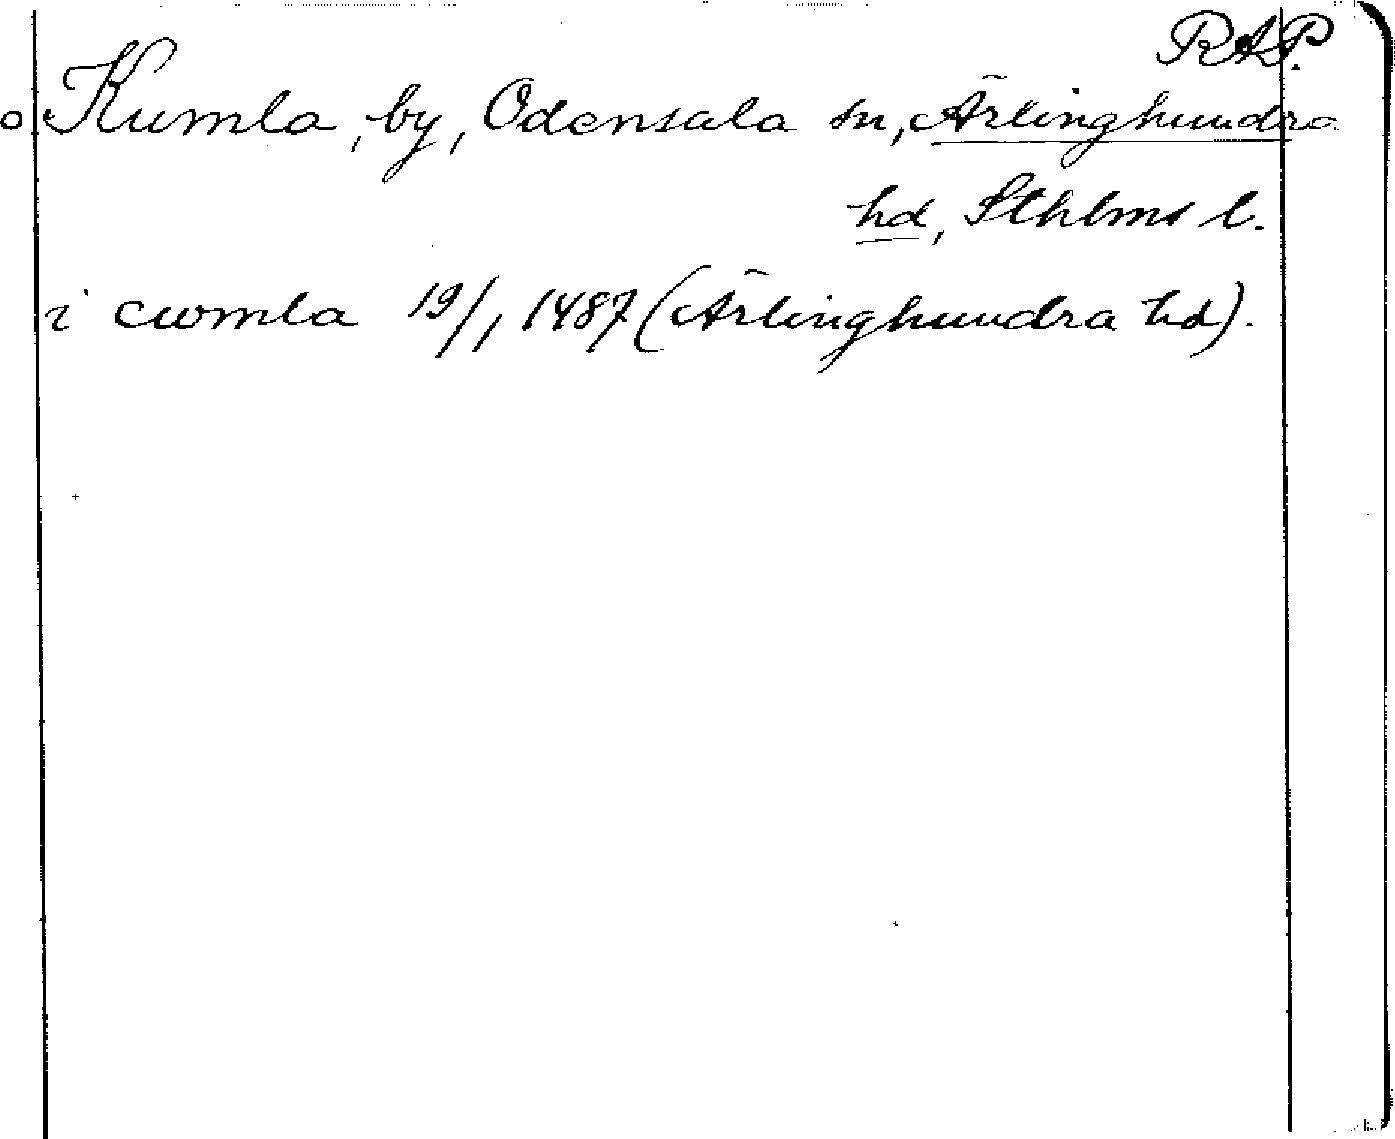 RAP.
o Kumla, by, Odensala sn, Ärlinghundra
hd, Sthlms l.
i cwmla 19/1 1487 (Ärlinghundra hd).